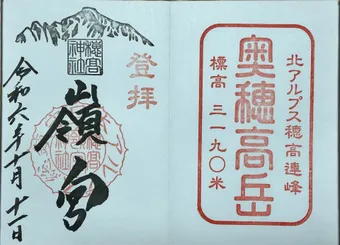 北アルプス穂高連峰
奥穂高岳
標高 三一九〇米
登拝
穂高神社
嶺宮
令和六年十月十一日